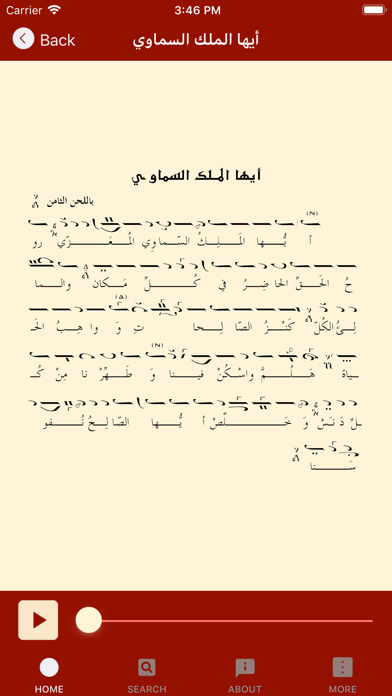 Carrier 3:46 PM
Back أيها الملك السماوي
أيها الملك السماوي
باللحن الثامن
(N)
أ يُّـــها المَـــلِـــكُ السَّـماوِي المُـــعَـــزّي رو
حُ الحَـــقِّ الحا ضِـــرُ في كُـــلِّ مَـــكان والـــما
(Δ)
لِـــئُ الكُلّ كَـنْـــزُ الصّا لِـــحا تِ وَ وا هِـــبُ الحَـ
(N)
ـياة هَـــلُـــمَّ واسْـــكُنْ فيـــنا وَ طَـــهِّرْ نا مِنْ كُـ
ـلِّ دَ نَـــسْ وَ خَـــلِّصْ أ يُّـــها الصّالِـــحُ نُـــفو
سَـــنا
HOME SEARCH ABOUT MORE